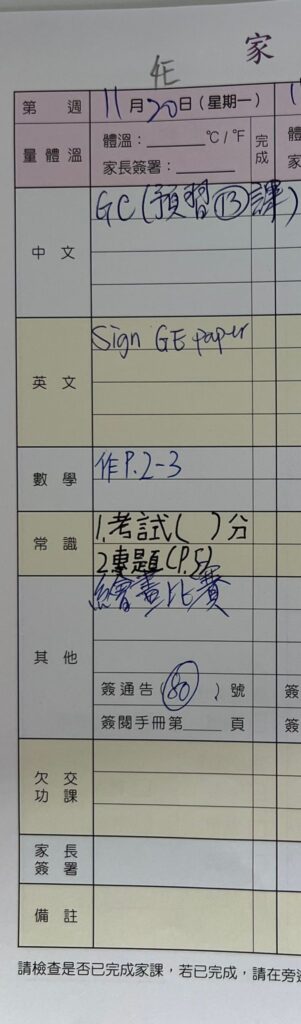 4E
家
第 週 11月20日(星期一)
量體溫 體溫:______°C/°F
家長簽署:______
完成
體
家
中文 GC(預習⑬譯)
英文 Sign GE paper
數學 作P.2-3
常識 1.考試( )分
2.專題(P.5)
其他 繪畫比賽
簽通告(80)號
簽
簽閱手冊第____頁
簽
欠交功課
家長簽署
備註
請檢查是否已完成家課,若已完成,請在旁